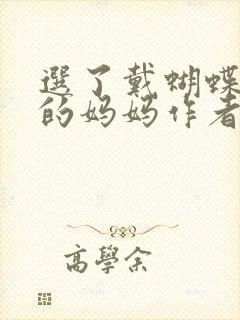 選了戴蝴蝶
的妈妈作者
高學余